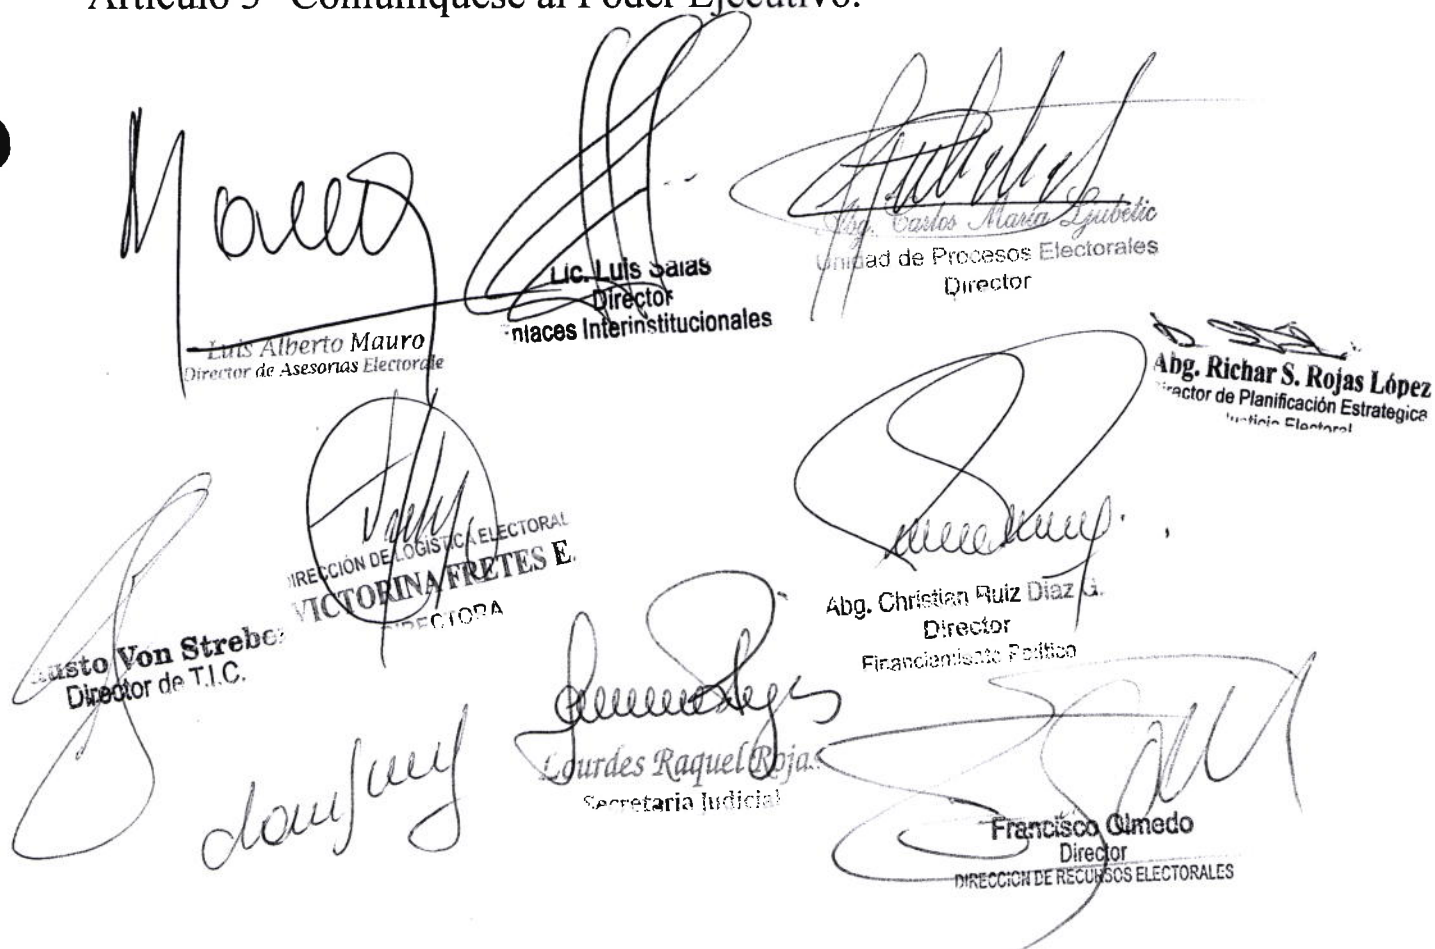 Artículo 3° Comuníquese al Poder Ejecutivo.
Mauro
Lic. Luis Salas
Director
Enlaces Interinstitucionales
Abg. Carlos María Ljubetic
Unidad de Procesos Electorales
Director
Luis Alberto Mauro
Director de Asesorías Electorale
Abg. Richar S. Rojas López
Director de Planificación Estrategica
Justicia Electoral
DIRECCIÓN DE LOGÍSTICA ELECTORAL
VICTORINA FRETES E.
DIRECTORA
Abg. Christian Ruiz Diaz G.
Director
Financiamiento Político
usto Von Strebe
Director de T.I.C.
Lourdes Raquel Rojas
Secretaria Judicial
Francisco Olmedo
Director
DIRECCION DE RECURSOS ELECTORALES